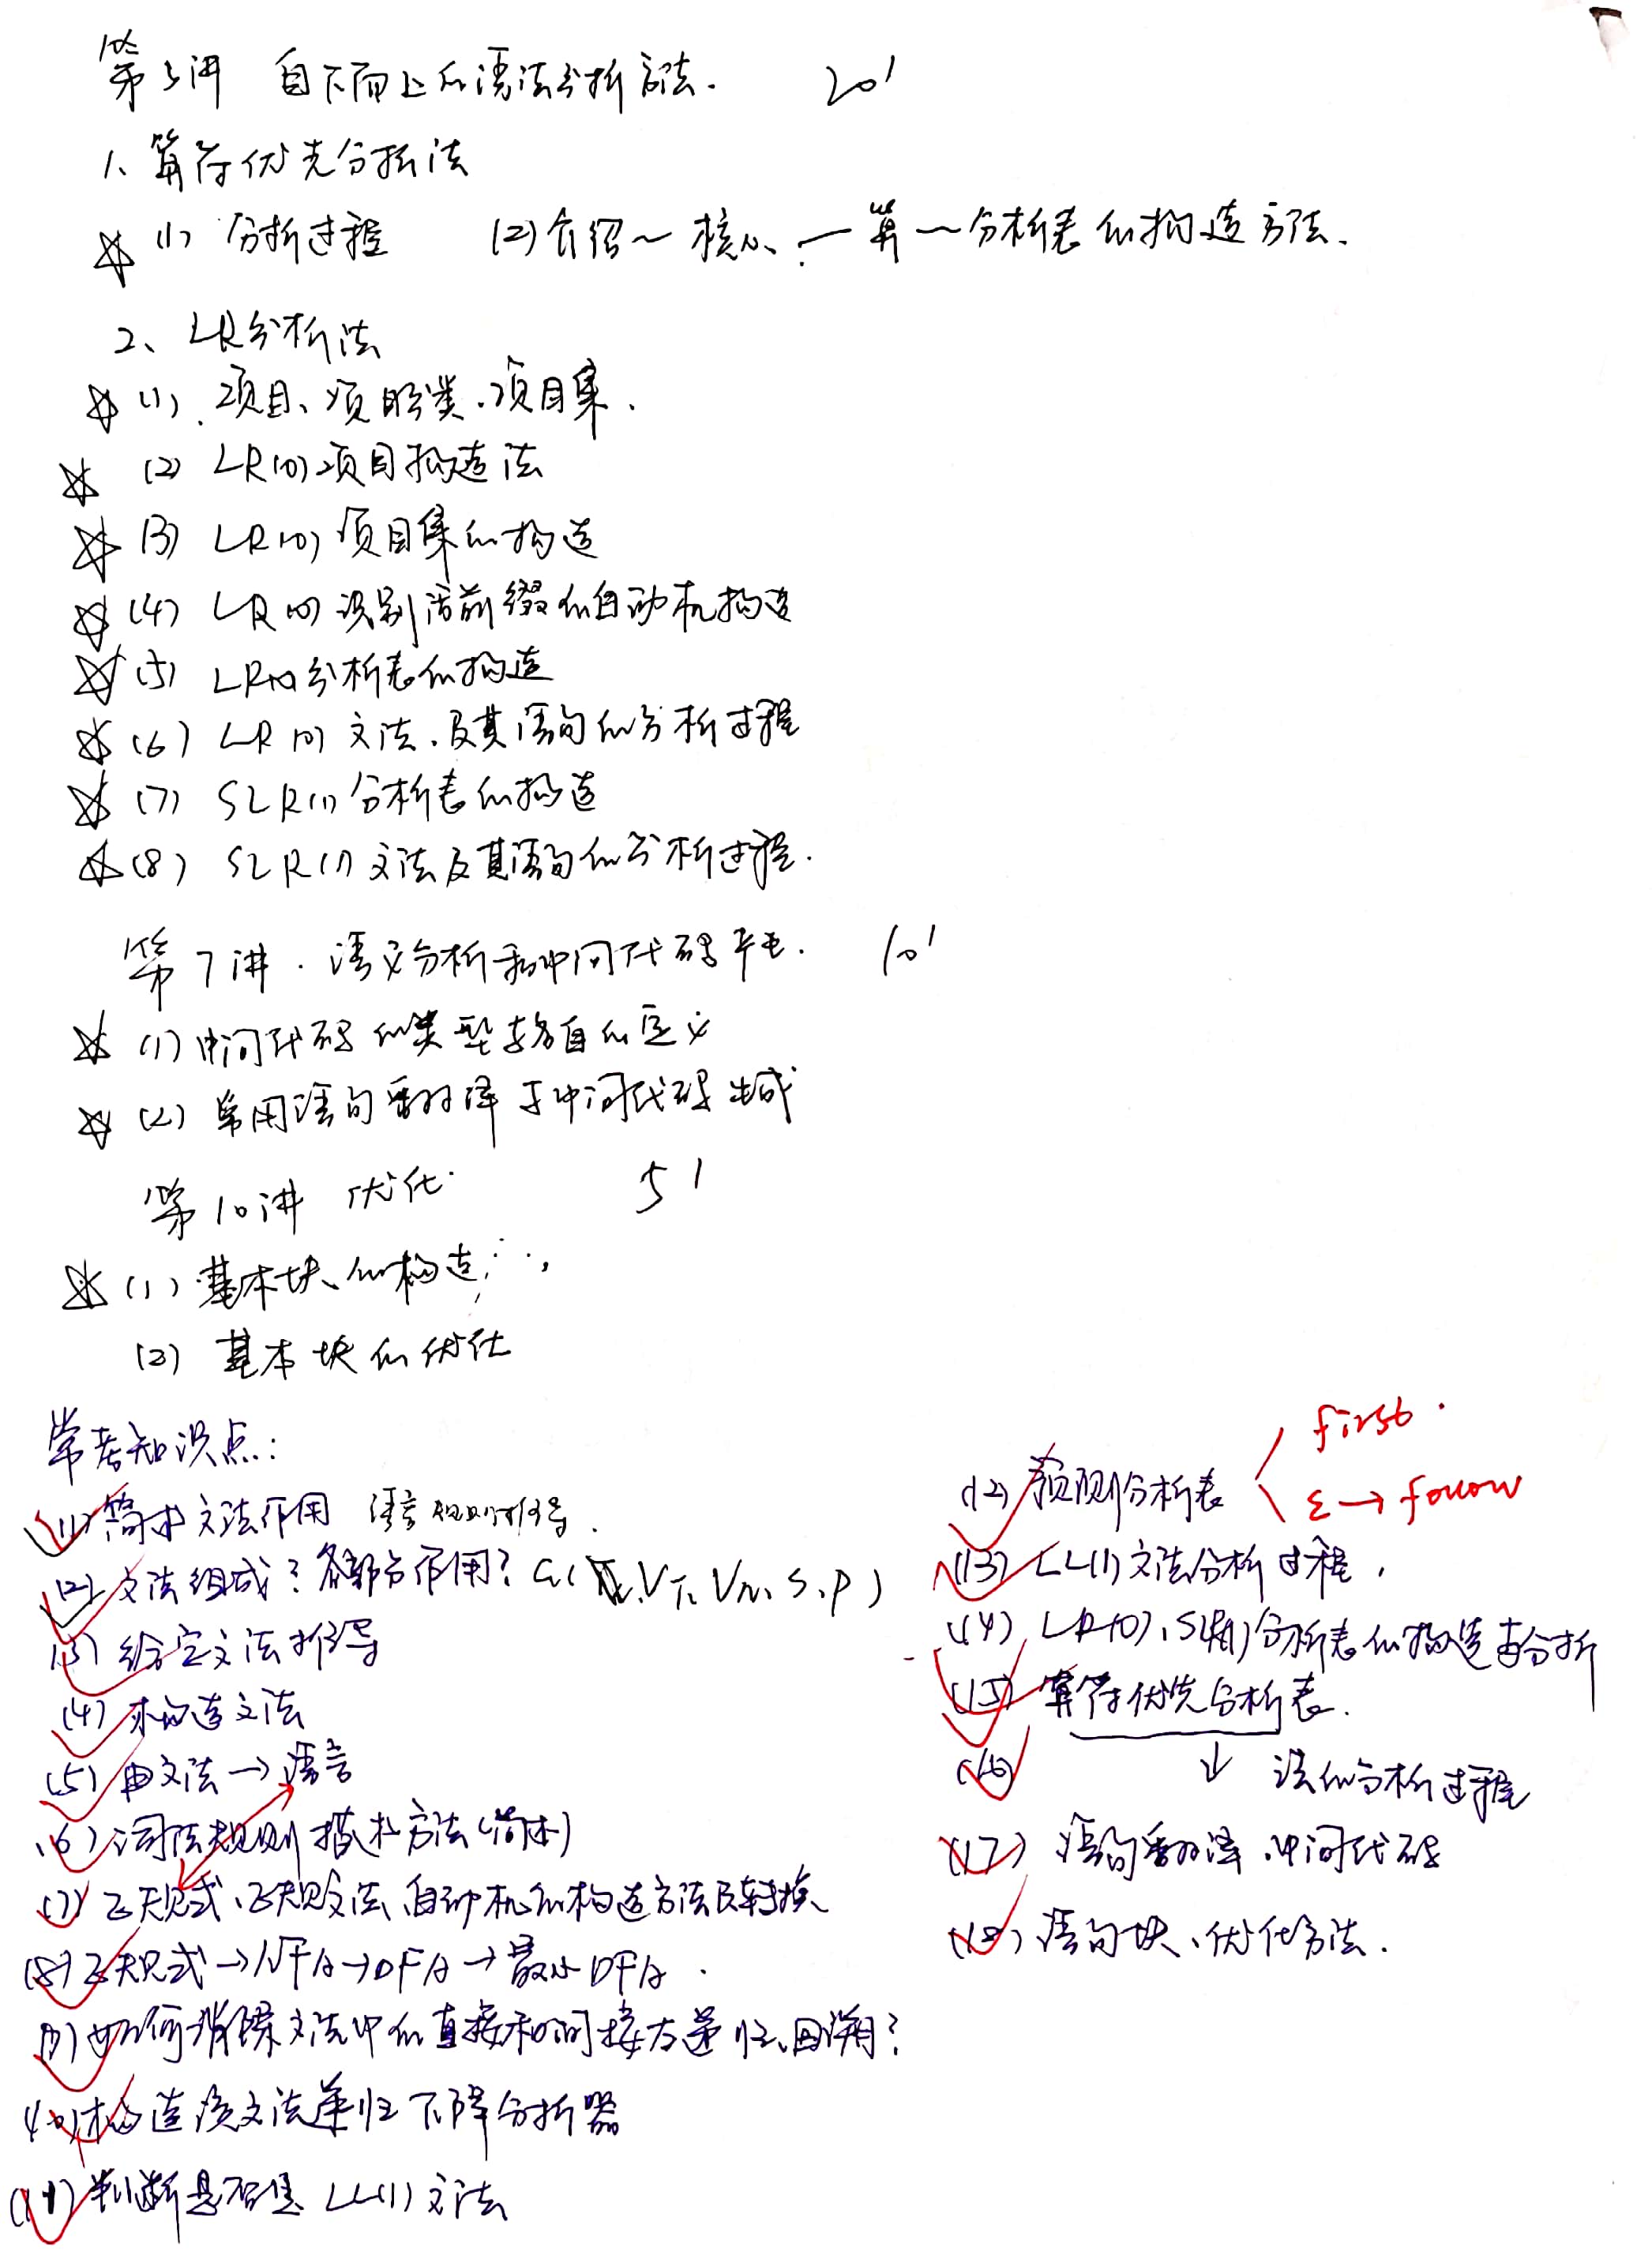 第5讲 自下而上的语法分析方法. 20'
1、算符优先分析法
☆ (1) 分析过程 (2) 介绍~核心、一算~分析表的构造方法.
2、LR分析法
☆ (1) 项目、项目分类、项目集.
☆ (2) LR(0)项目构造法
☆ (3) LR(0)项目集的构造
☆ (4) LR(0)识别活前缀的自动机构造
☆ (5) LR(0)分析表的构造
☆ (6) LR(0)文法、及其语句的分析过程
☆ (7) SLR(1)分析表的构造
☆ (8) SLR(1)文法及其语句的分析过程.
第7讲. 语义分析和中间代码产生. 10'
☆ (1) 中间代码的类型与各自的定义
☆ (2) 常用语句翻译与中间代码生成
第10讲 优化. 5'
☆ (1) 基本块的构造
(2) 基本块的优化
常考知识点:
(1) 简述文法作用 语言规则推导.
(2) 文法组成?各部分作用?G(VT、VN、S、P)
(3) 给定文法推导
(4) 求构造文法
(5) 由文法→语言
(6) 词法规则描述方法(简述)
(7) 正规式、正规文法、自动机的构造方法及转换
(8) 正规式→NFA→DFA→最小DFA.
(9) 如何消除文法中的直接和间接左递归、回溯?
(10) 构造该文法递归下降分析器
(11) 判断是否是LL(1)文法
(12) 预测分析表 first.
ε→follow
(13) LL(1)文法分析过程.
(14) LR(0)、SLR(1)分析表的构造与分析
(15) 算符优先分析表.
(16) ↓ 法的分析过程
(17) 语句翻译、中间代码
(18) 语句块、优化方法.